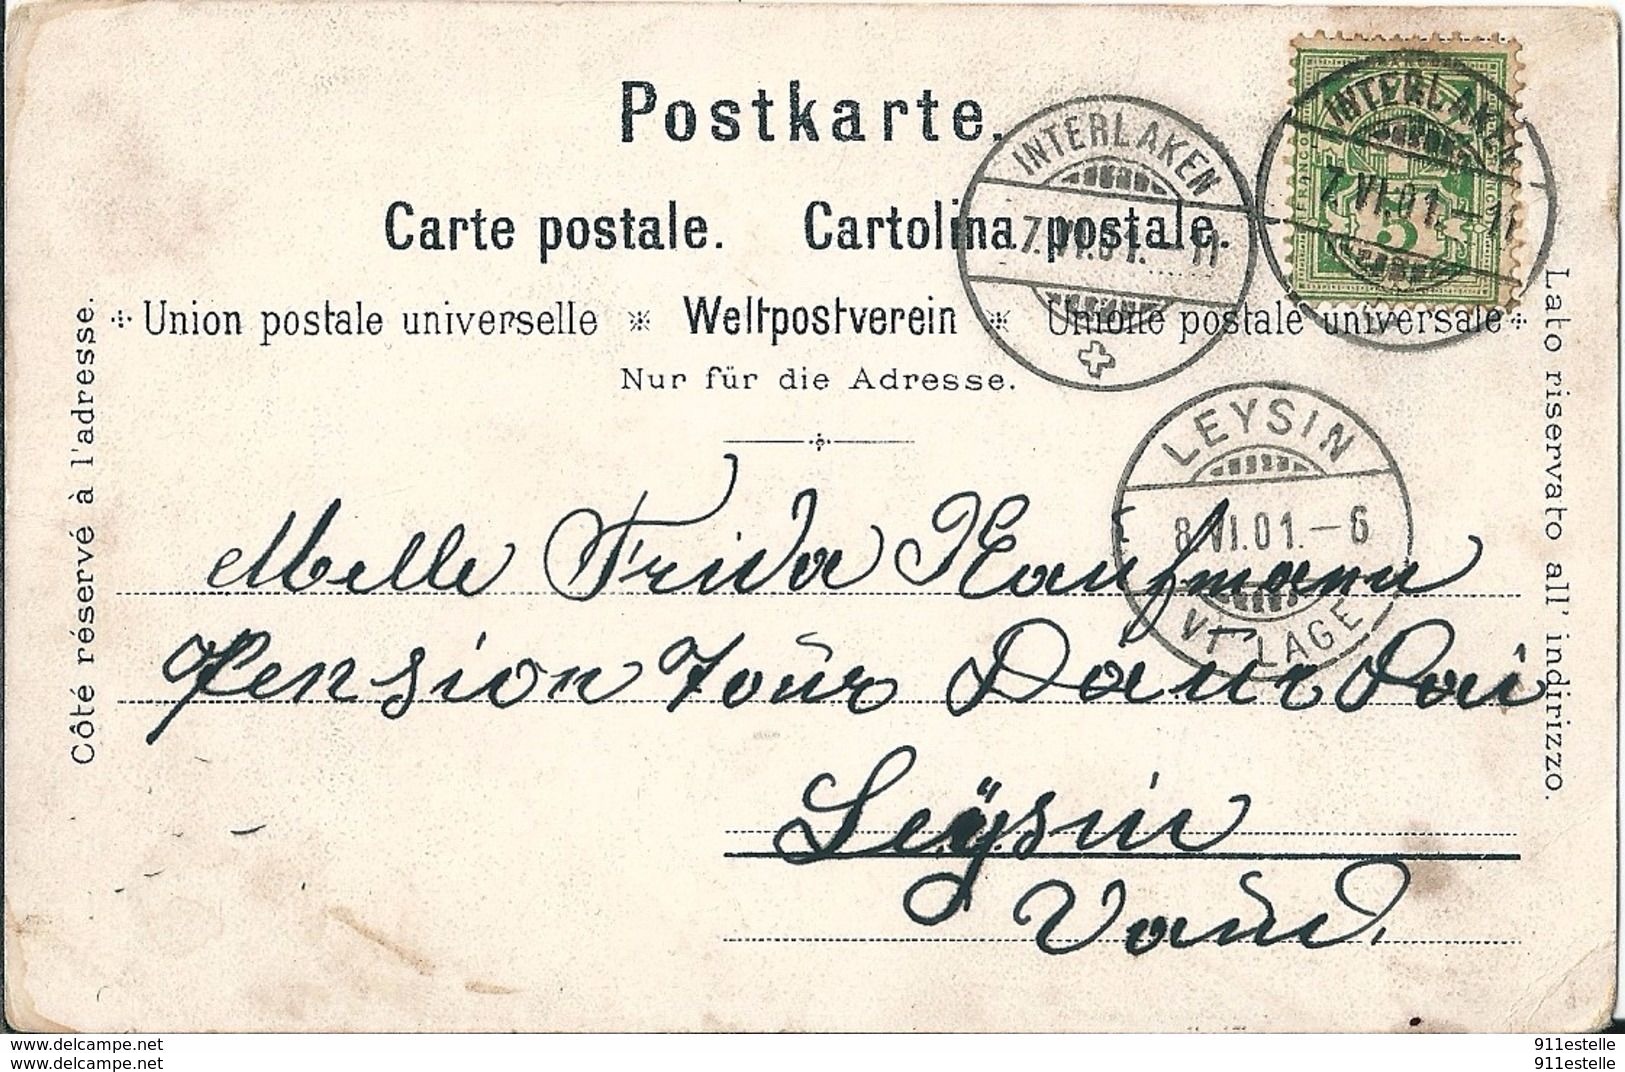 Postkarte.
Carte postale. Cartolina postale.
Union postale universelle * Weltpostverein * Unione postale universale
Nur für die Adresse.
Côté réservé à l'adresse.
Lato riservato all' indirizzo.
INTERLAKEN
7.VI.01.-11
INTERLAKEN
7.VI.01.-11
FRANCO
5
LEYSIN
8.VI.01.-6
VILLAGE
Melle Frida Kaufmann
Pension Tour
Leÿsin
Vaud.
www.delcampe.net
911estelle
www.delcampe.net
911estelle